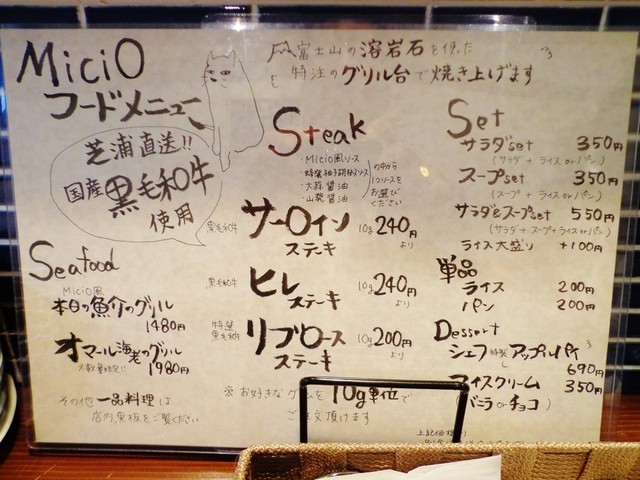 MiciO
フードメニュー
芝浦直送!!
国産黒毛和牛
使用
富士山の溶岩石を使った
特注のグリル台で焼き上げます
Seafood
MiciO風
本日の魚介のグリル
1480円
オマール海老のグリル
1980円
その他一品料理は
店内黒板をご覧ください
Steak
・MiciO風ソース
・蜂蜜柚子胡椒ソース
・大蒜醤油
・山葵醤油
の中から
1つソースを
お選び
ください
黒毛和牛
サーロイン
ステーキ
10g 240円
より
黒毛和牛
ヒレ
ステーキ
10g 240円
より
特選
黒毛和牛
リブロース
ステーキ
10g 200円
より
※お好きなグラムを10g単位で
ご注文頂けます
Set
サラダset 350円
(サラダ + ライス or パン)
スープset 350円
(スープ + ライス or パン)
サラダ&スープset 550円
(サラダ + スープ + ライス or パン)
ライス大盛り +100円
単品
ライス 200円
パン 200円
Dessert
シェフ特製アップルパイ
690円
アイスクリーム 350円
(バニラ or チョコ)
上記価格